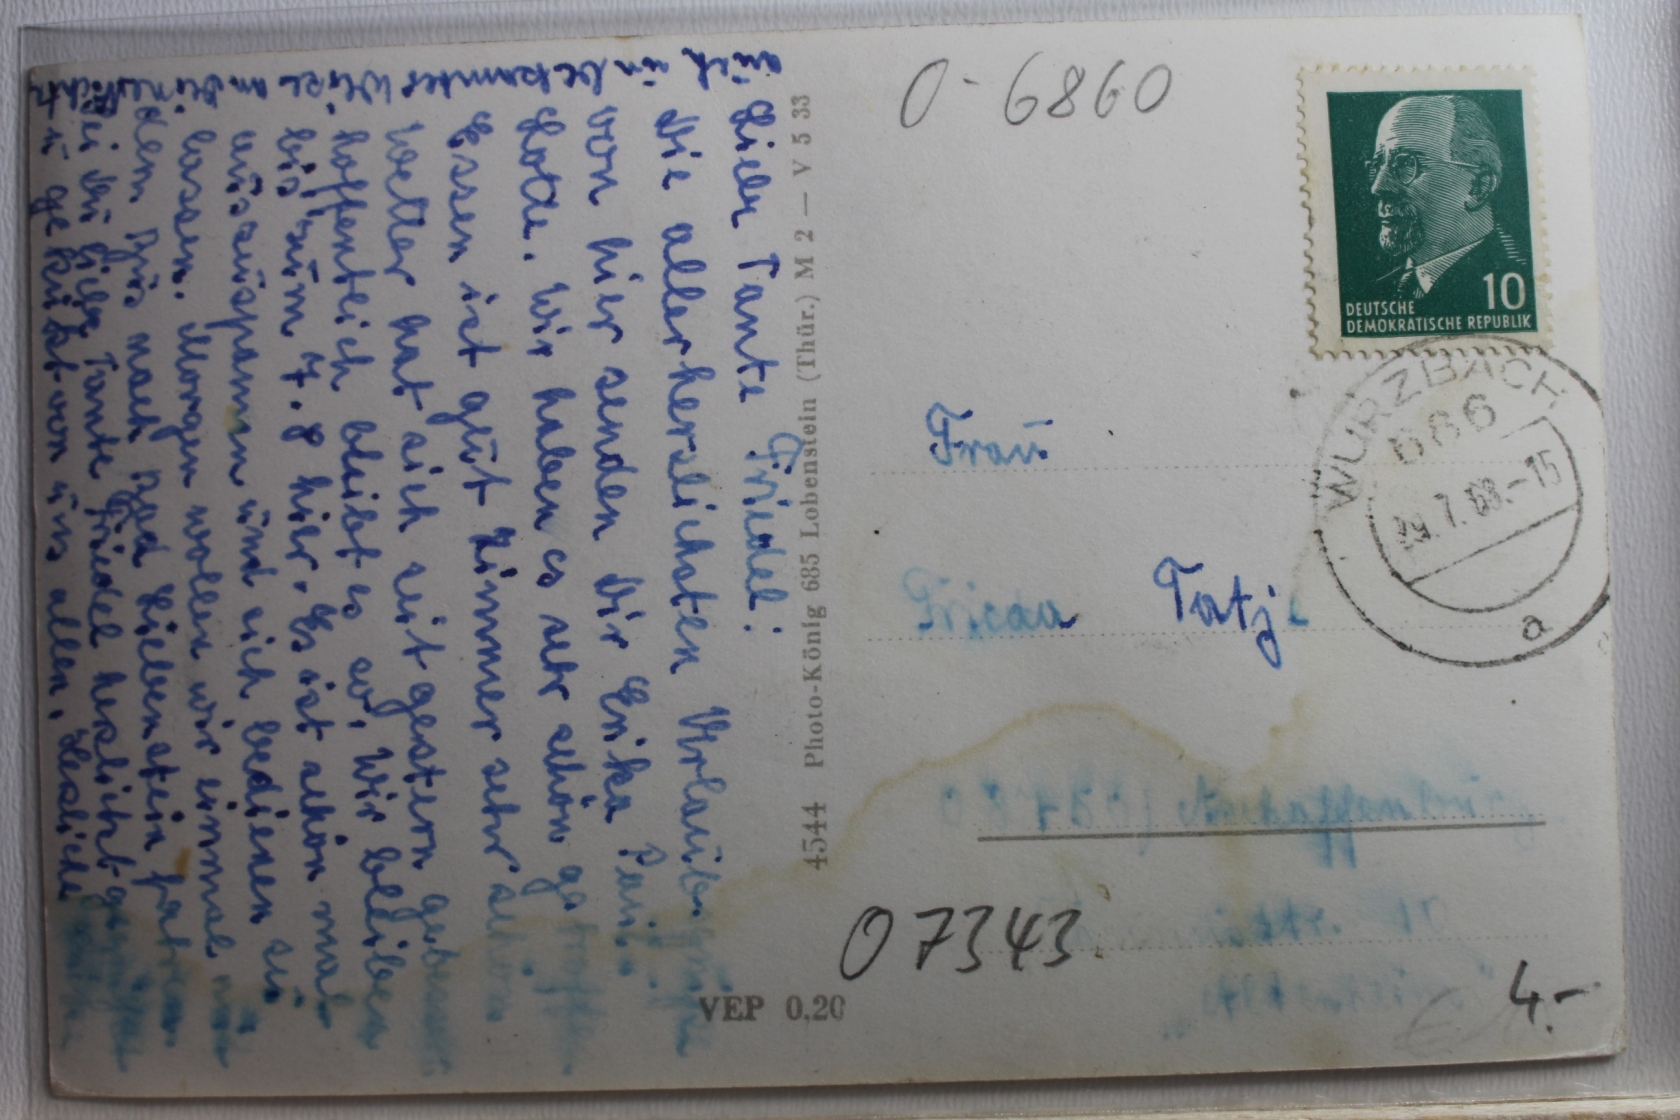 Liebe Tante Friedel!
Die allerherzlichsten Urlaubsgrüße
von hier senden Dir Erika Paul
Lotte. Wir haben es sehr schön getroffen
Essen ist gut Zimmer sehr schön
Wetter hat sich seit gestern gebessert
hoffentlich bleibt es so, Wir bleiben
bis zum 7.8 hier. Es ist schön mal
auszuspannen und sich bedienen zu
lassen. Morgen wollen wir einmal
dem Bus nach Bad Liebenstein fahren
Sei Du liebe Tante Friedel herzlichst gegrüßt
u geküßt von uns allen, Herzliche
auch unbekannter Weise an Deine
4544 Photo-König 685 Lobenstein (Thür.) M 2 — V 5 33
VEP 0.20
0-6860
10
DEUTSCHE
DEMOKRATISCHE REPUBLIK
WURZBACH
686
29.7.68.-15
a
Frau
Frieda Tatje
07343
4.-